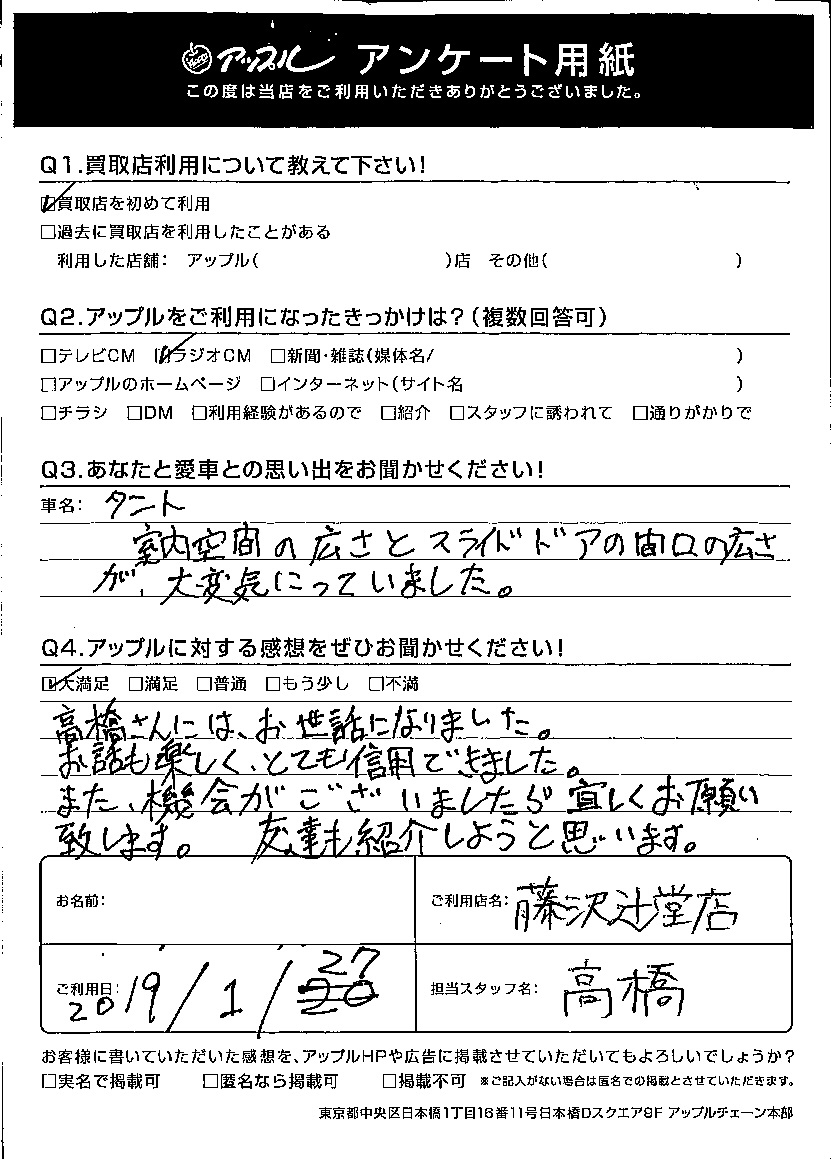 アップル アンケート用紙
この度は当店をご利用いただきありがとうございました。
Q1.買取店利用について教えて下さい!
☑買取店を初めて利用
□過去に買取店を利用したことがある
利用した店舗: アップル( )店 その他( )
Q2.アップルをご利用になったきっかけは?(複数回答可)
□テレビCM ☑ラジオCM □新聞・雑誌(媒体名/ )
□アップルのホームページ □インターネット(サイト名 )
□チラシ □DM □利用経験があるので □紹介 □スタッフに誘われて □通りがかりで
Q3.あなたと愛車との思い出をお聞かせください!
車名: タント
室内空間の広さとスライドドアの間口の広さ
が、大変気にっていました。
Q4.アップルに対する感想をぜひお聞かせください!
☑大満足 □満足 □普通 □もう少し □不満
高橋さんには、お世話になりました。
お話も楽しく、とても信用できました。
また、機会がございましたら宜しくお願い
致します。 友達も紹介しようと思います。
お名前:
ご利用店名: 藤沢辻堂店
ご利用日: 2019/1/27
担当スタッフ名: 高橋
お客様に書いていただいた感想を、アップルHPや広告に掲載させていただいてもよろしいでしょうか?
□実名で掲載可 □匿名なら掲載可 □掲載不可 ※ご記入がない場合は匿名での掲載とさせていただきます。
東京都中央区日本橋1丁目16番11号日本橋Dスクエア9F アップルチェーン本部